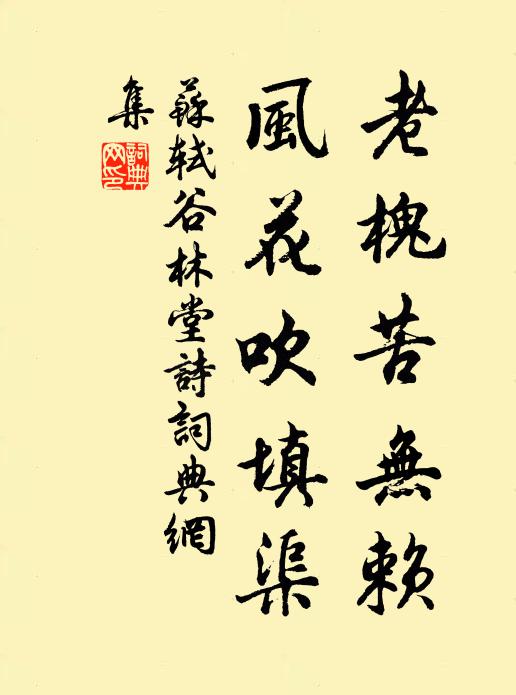 老槐苦無賴
風花吹填渠
蘇軾谷林堂詩詞典網
集
詞典網印